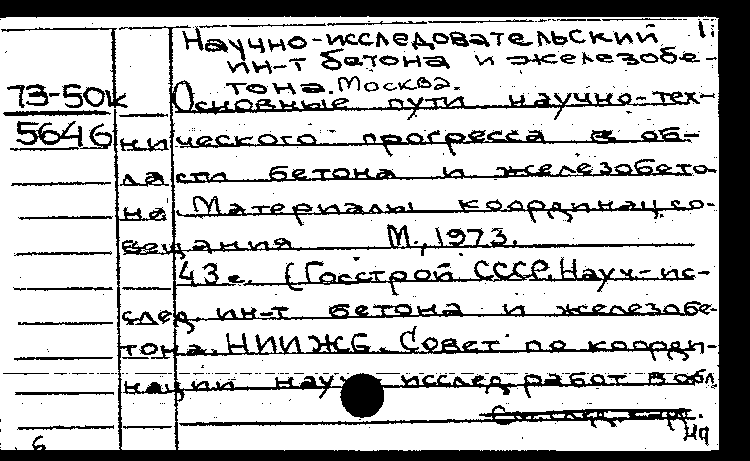 Научно-исследовательский
ин-т бетона и железобе-
тона. Москва.
73-50к
Основные пути научно-тех-
5646
нического прогресса в об-
ласти бетона и железобето-
на. Материалы координац. со-
вещания. М., 1973.
43 с. (Госстрой СССР. Науч-ис-
след. ин-т бетона и железобе-
тона. НИИЖБ. Совет по коорди-
нации науч исслед. работ в обл
См. след. карт.
6